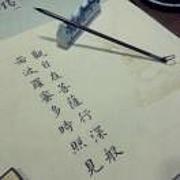 觀自在菩薩行深般
若波羅蜜多時照見